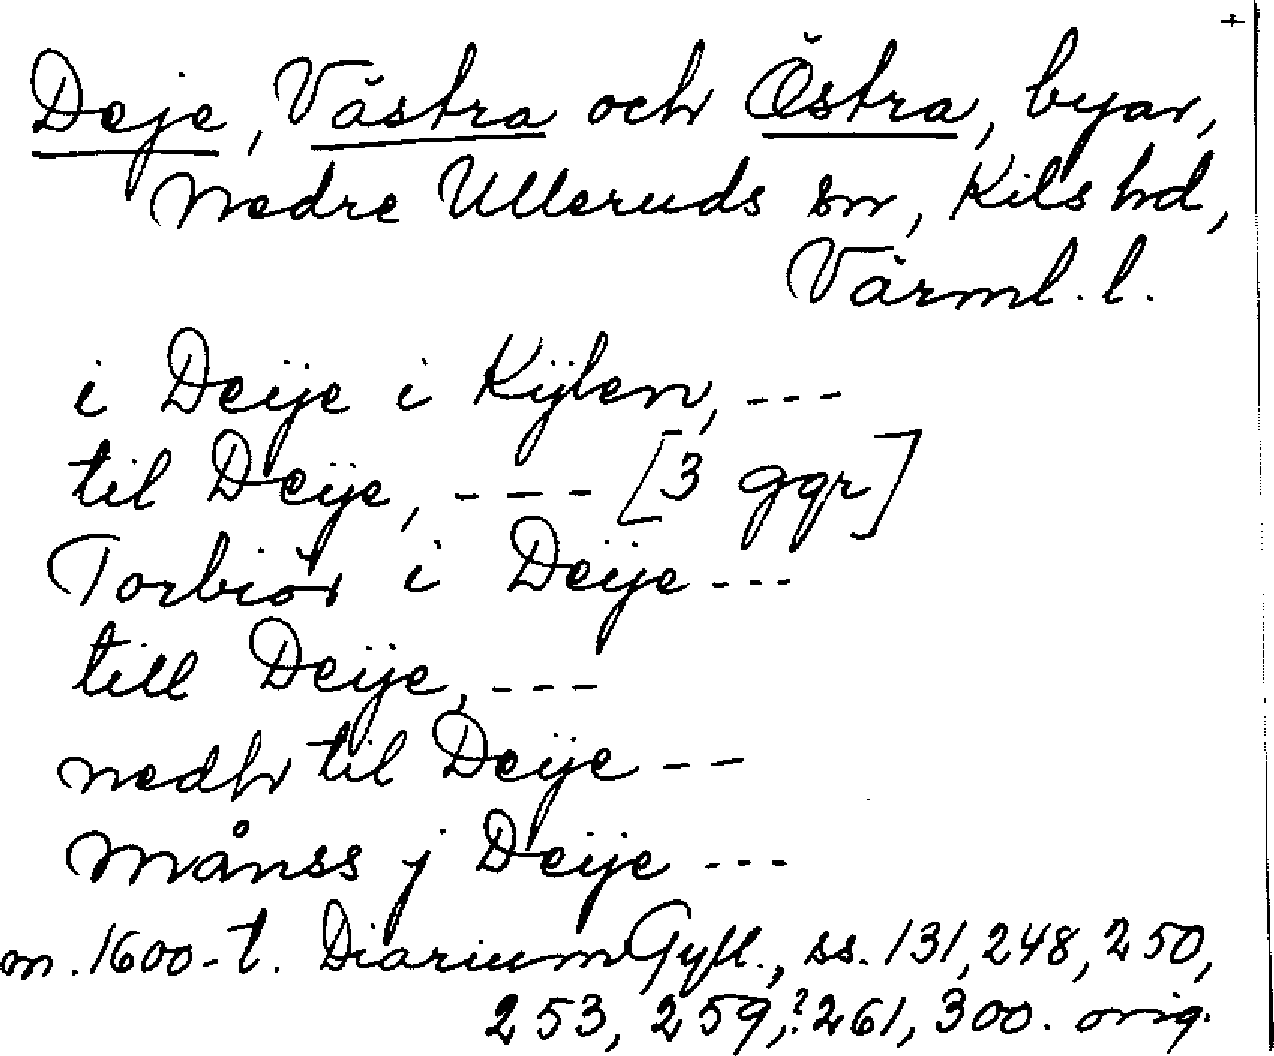 +
Deje, Västra och Östra, byar,
Nedre Ulleruds sn, Kils hd,
Värml. l.
i Deije i Kijlen, ---
til Deije, --- [3 ggr]
Torbiör i Deije ---
till Deije, ---
nedhr til Deije --
Månss j Deije ---
m. 1600-t. Diarium Gyll., ss. 131, 248, 250,
253, 259,? 261, 300. orig.